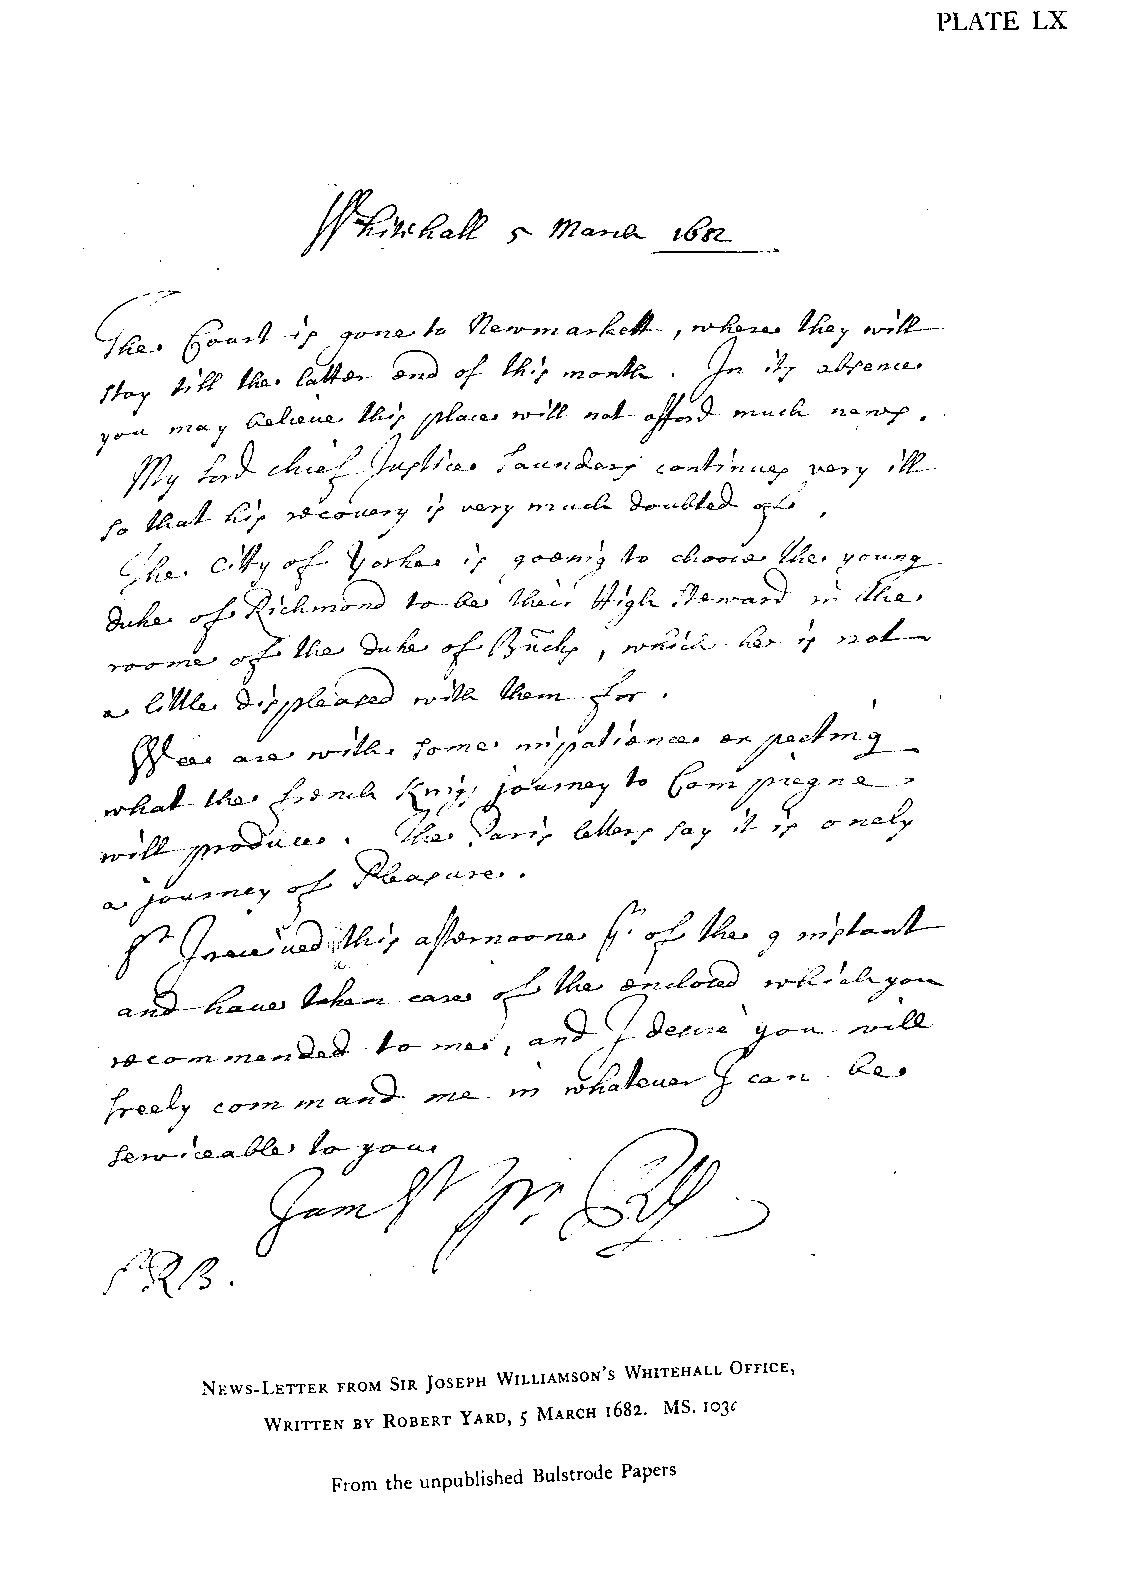 PLATE LX
Whitehall 5 March 1682
The Court is gone to Newmarkett, where they will
stay till the latter end of this month. In its absence
you may believe this place will not afford much news.
My Lord chief Justice Saunders continues very ill
so that his recovery is very much doubted of.
The Citty of Yorke is goeing to choose the young
duke of Richmond to be their High Steward in the
roome of the duke of Bucks, which he is not
a little displeased with them for.
Wee are with some impatience expecting
what the french Kings journey to Compiegne
will produce. The Paris letters say it is onely
a journey of Pleasure.
Sr I received this afternoone yrs of the 9 instant
and have taken care of the enclosed which you
recommended to me, and I desire you will
freely command me in whatever I can be
serviceable to you.
I am Sr Yrs RY
S R B.
NEWS-LETTER FROM SIR JOSEPH WILLIAMSON'S WHITEHALL OFFICE,
WRITTEN BY ROBERT YARD, 5 MARCH 1682. MS. 103c
From the unpublished Bulstrode Papers